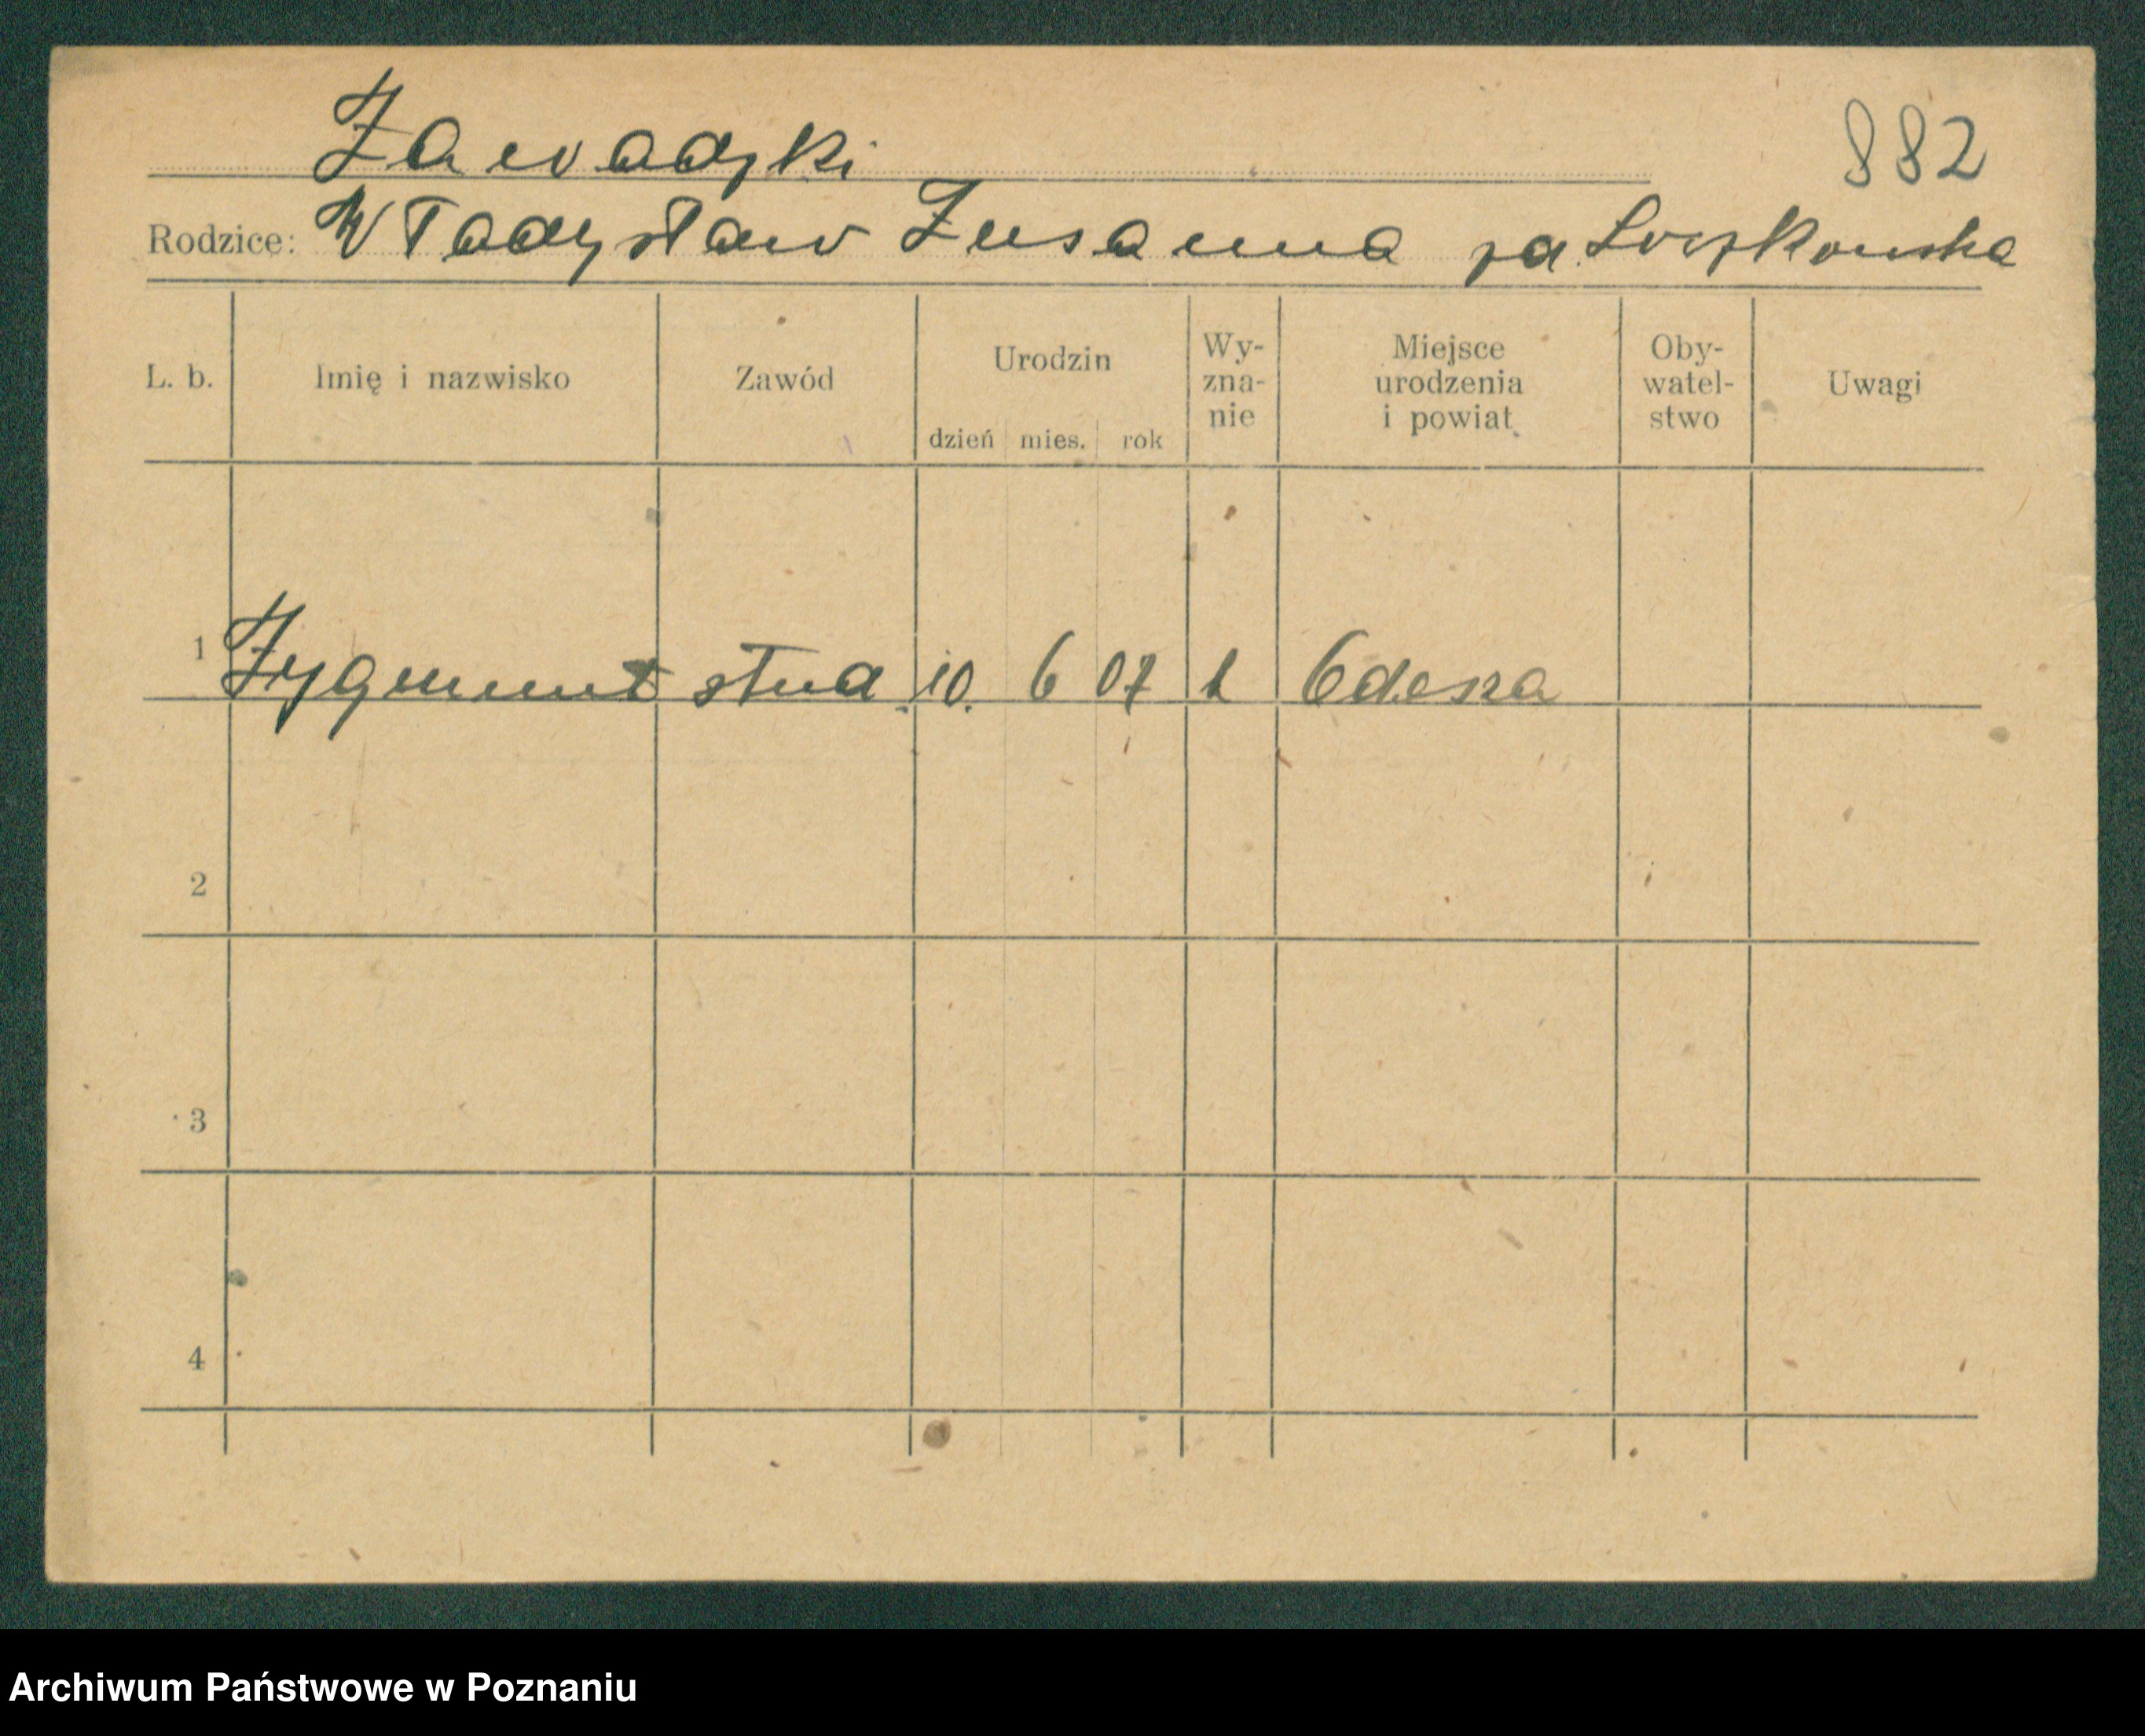 Zawadzki
882
Rodzice: Władysław Zusanna za Loszkowska
L. b.
Imię i nazwisko
Zawód
Urodzin
dzień mies. rok
Wy-
zna-
nie
Miejsce
urodzenia
i powiat
Oby-
watel-
stwo
Uwagi
1 Zygmunt stud. 10. 6 07 k Odessa
2
3
4
Archiwum Państwowe w Poznaniu